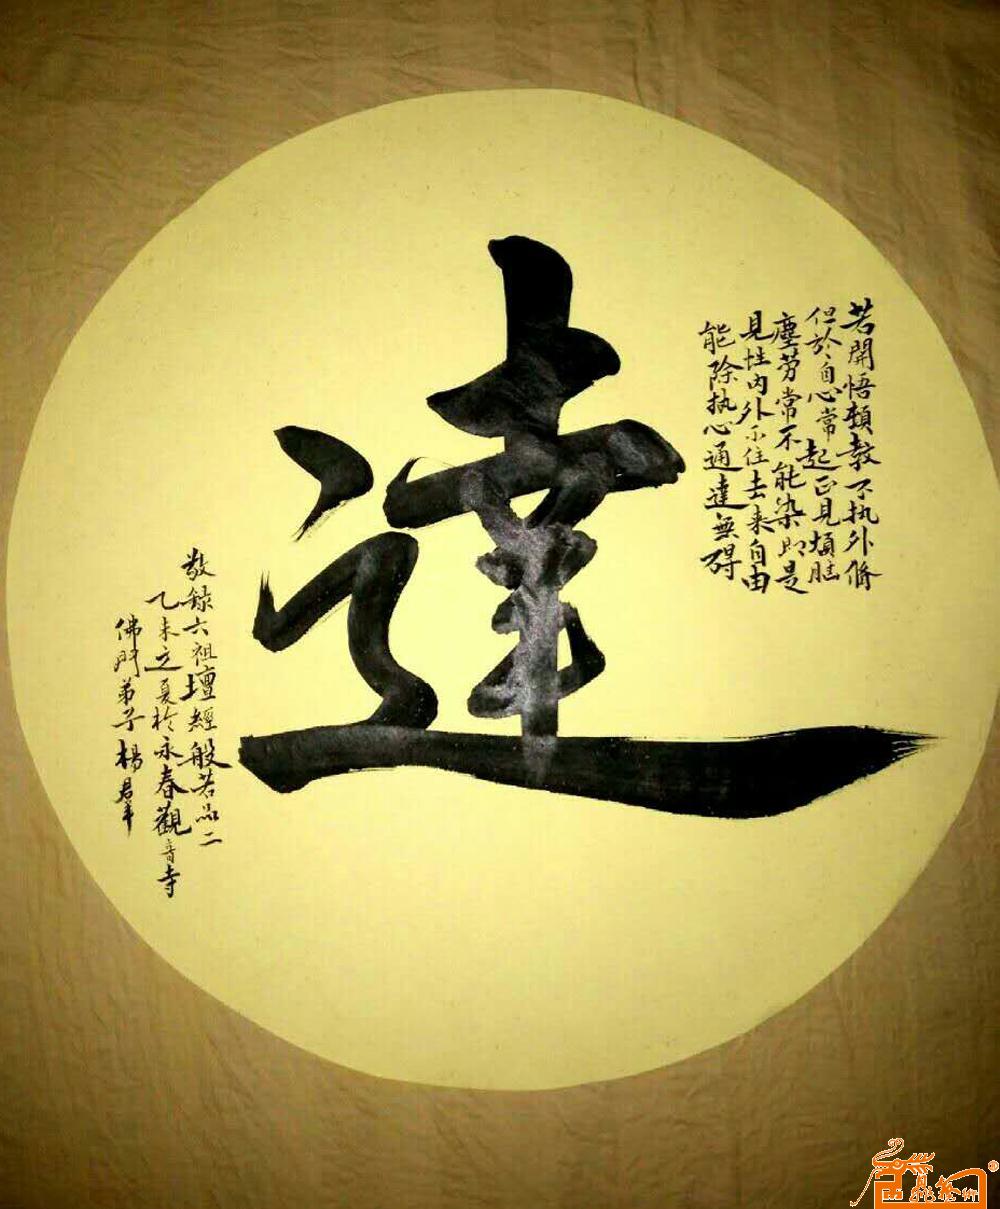 達
若開悟頓教不执外修
但於自心常起正見煩腦
塵劳常不能染即是
見性内外不住去来自由
能除执心通達無碍
敬録六祖壇經般若品二
乙未之夏於永春觀音寺
佛門弟子楊君